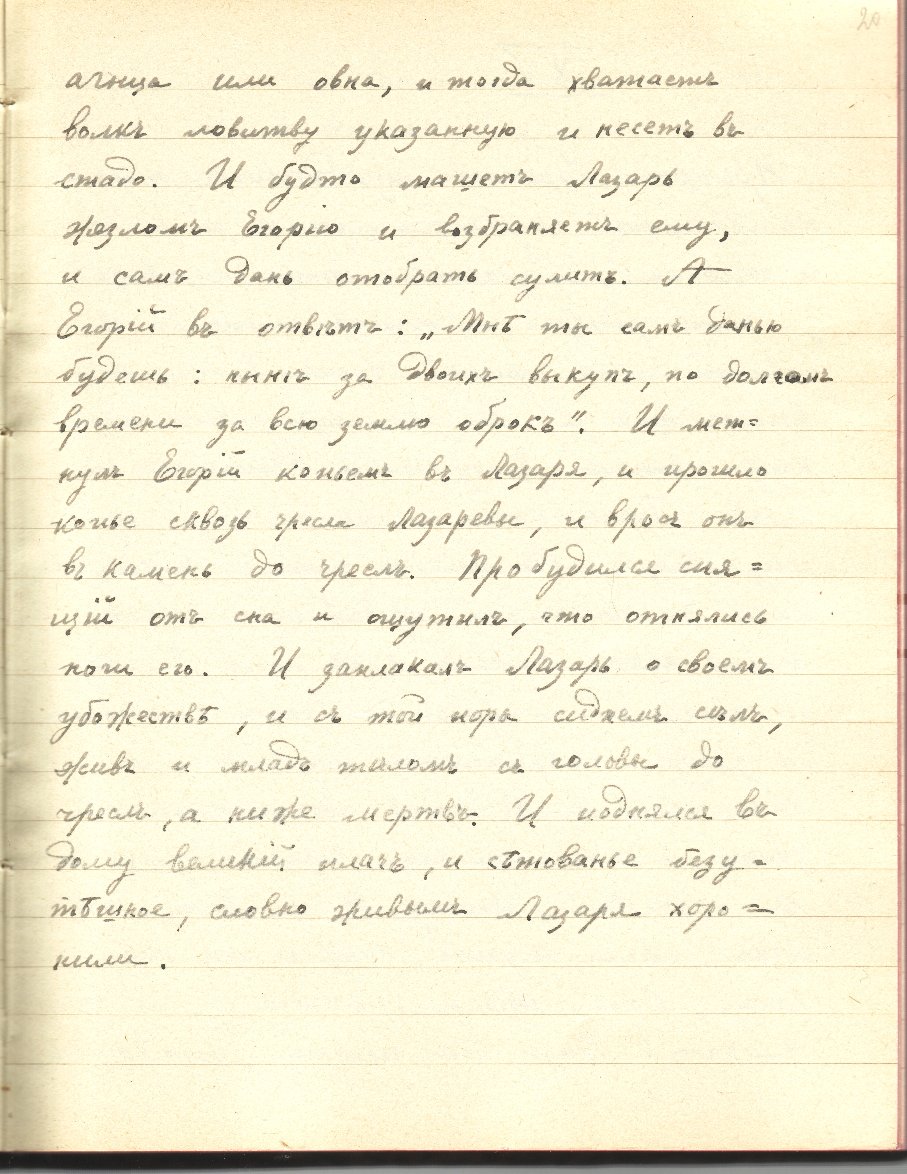 20
агнца или овна, и тогда хватаетъ
волкъ ловитву указанную и несетъ въ
стадо. И будто машетъ Лазарь
жезломъ Егорію и возбраняетъ ему,
и самъ дань отобрать сулитъ. А
Егорій въ отвѣтъ: „Мнѣ ты самъ данью
будешь: нынѣ за двоихъ выкупъ, по долгомъ
времени за всю землю оброкъ". И мет=
нулъ Егорій копьемъ въ Лазаря, и прошло
копье сквозь чресла Лазаревы, и вросъ онъ
въ камень до чреслъ. Пробудился спя=
щій отъ сна и ощутилъ, что отнялись
ноги его. И заплакалъ Лазарь о своемъ
убожествѣ, и съ той поры сиднемъ сѣлъ,
живъ и младъ тѣломъ съ головы до
чреслъ, а ниже мертвъ. И поднялся въ
дому великій плачъ, и сѣтованье безу=
тѣшное, словно живымъ Лазаря хоро=
нили.